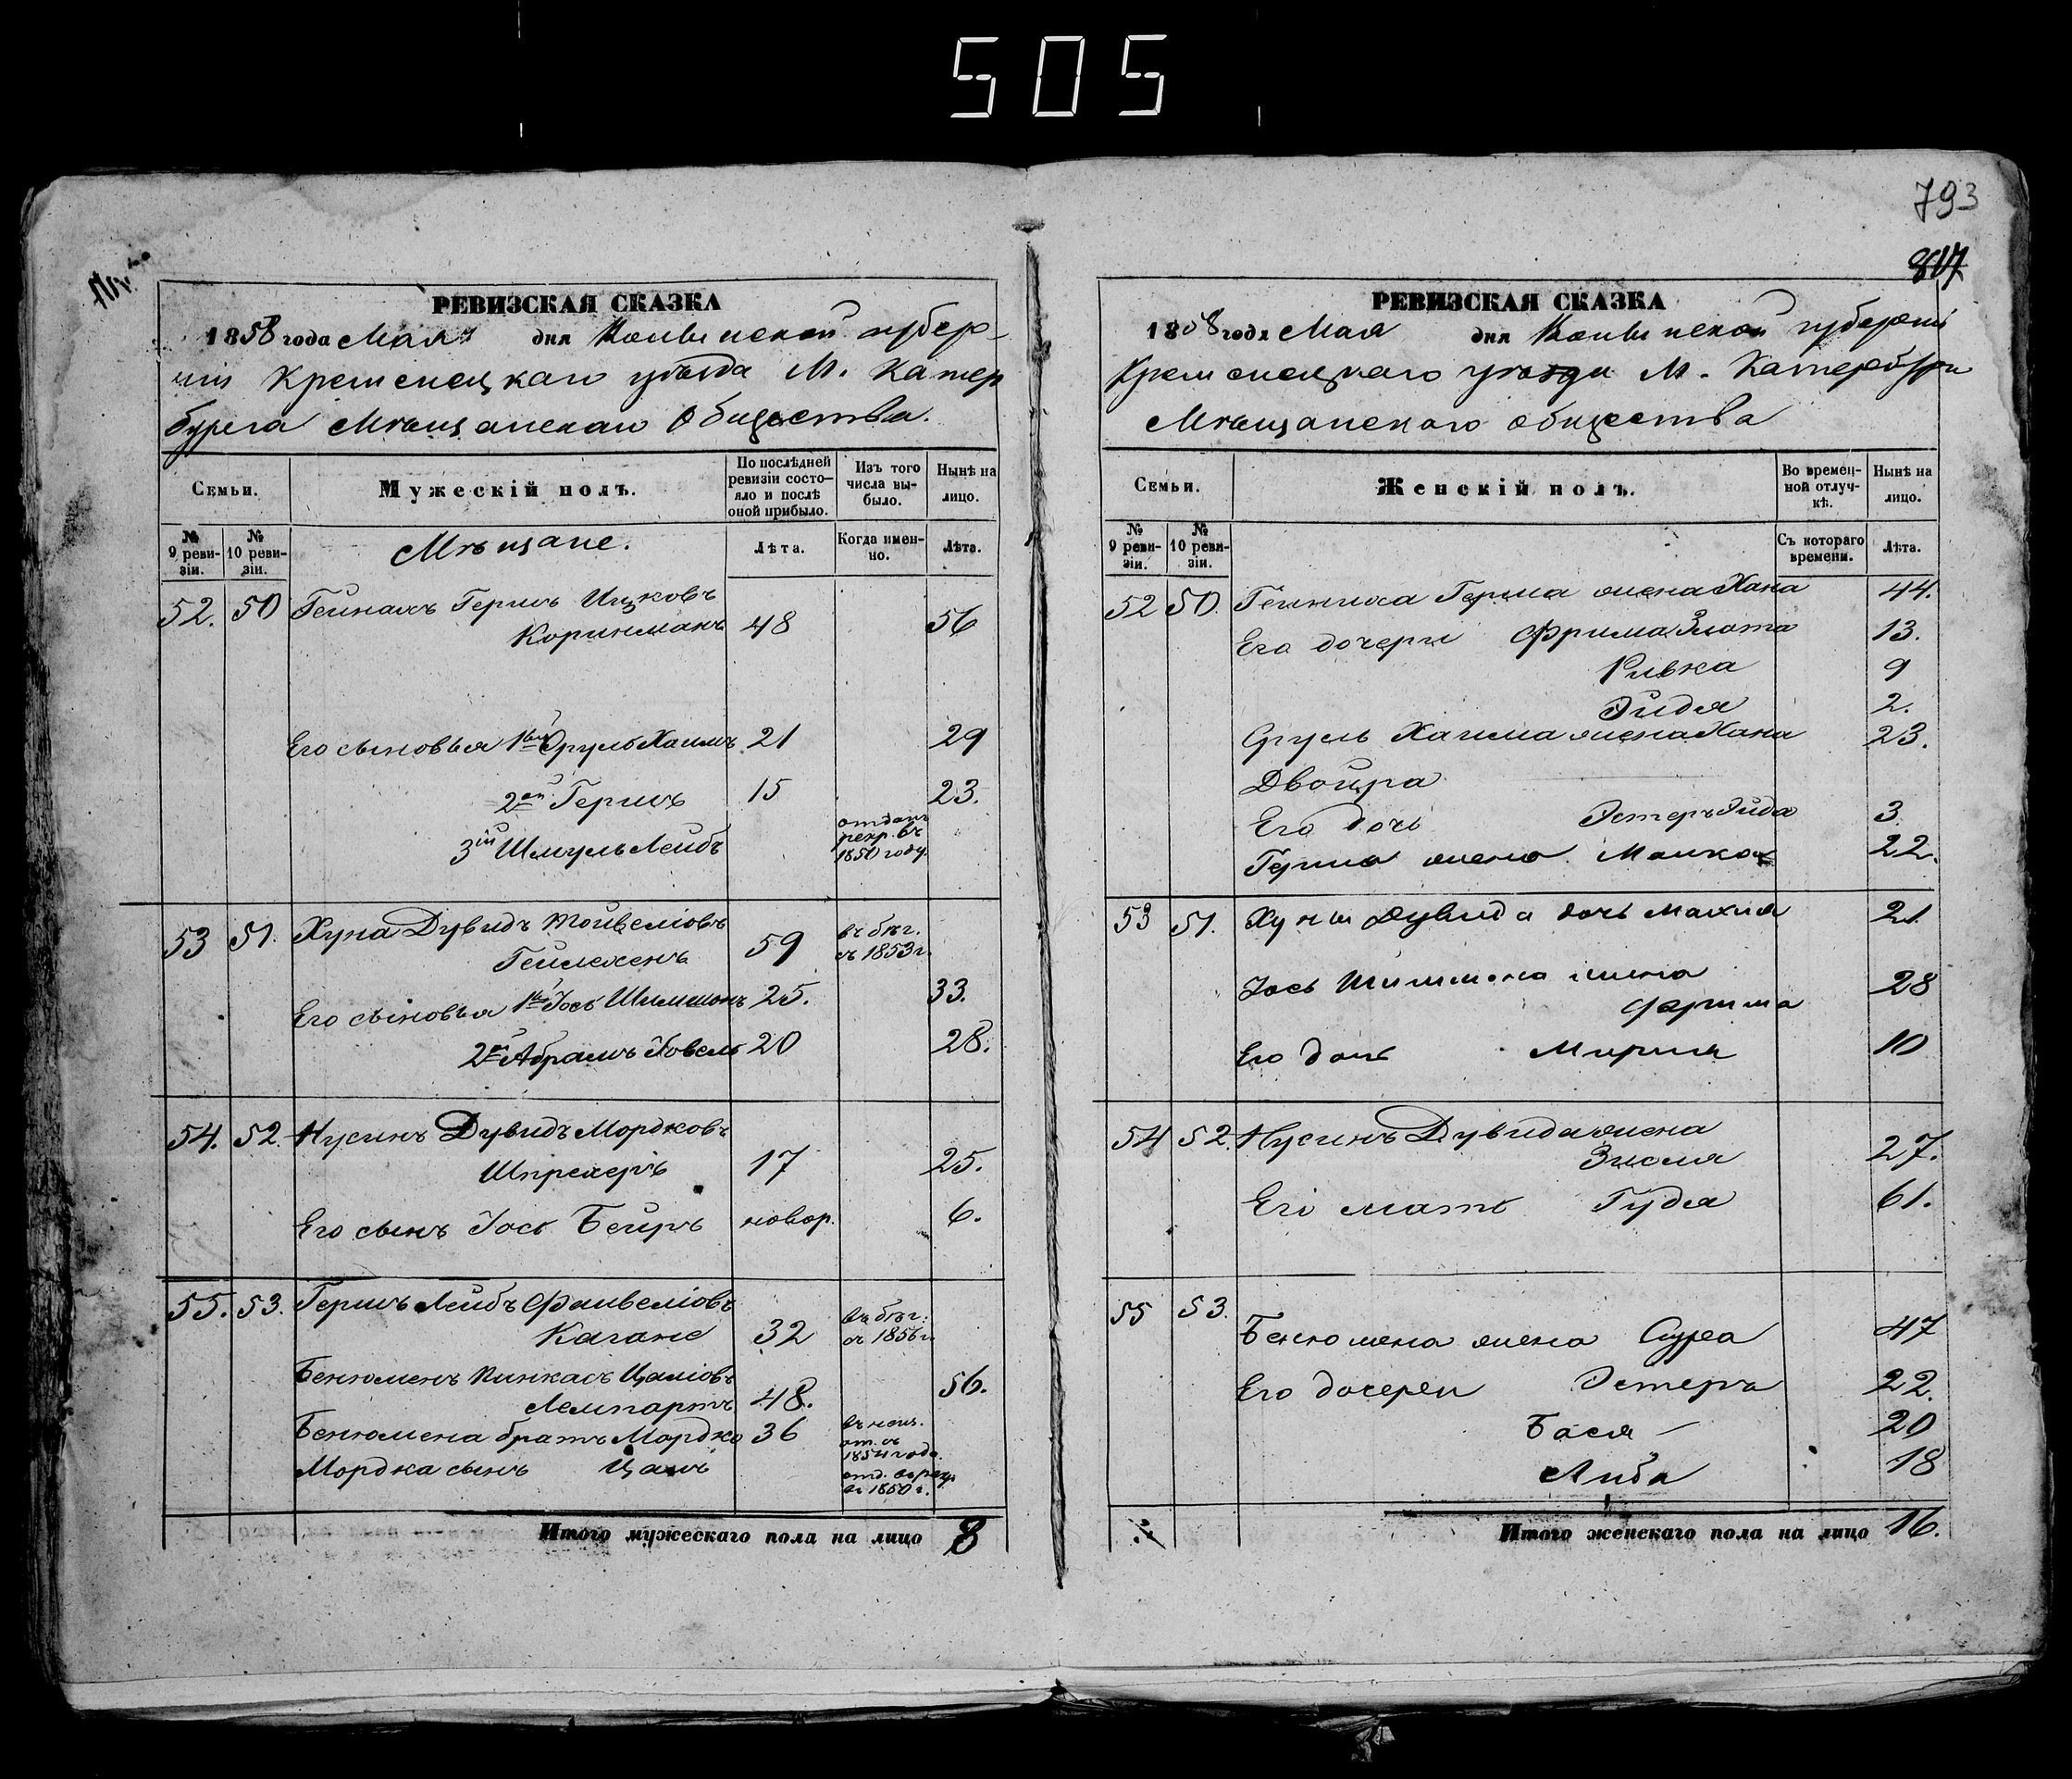 505
793
817
РЕВИЗСКАЯ СКАЗКА
1858 года Мая дня Волынской губер-
ніи Кременецкаго уѣзда М. Катер
бурга Мѣщанскаго Общества.
Семьи.
Мужескій полъ.
По послѣдней ревизіи состо-
яло и послѣ оной прибыло.
Изъ того числа вы-
было.
Нынѣ на лицо.
№ 9 реви-
зіи.
№ 10 реви-
зіи.
Мѣщане.
Лѣта.
Когда имен-
но.
Лѣта.
52. 50 Гейнахъ Гершъ Ицковъ
48 56
Его сыновья 1й Сруль Хаимъ 21 29
2ой Гершъ 15 23.
3ій Шмуль Лейбъ отданъ
рекр. въ
1850 году.
53 51. Хуна Дувидъ
59 въ бѣг.
съ 1853 г.
Его сыновья 1й Іось Шимшонъ 25. 33.
2й Абрамъ Іовель 20 28.
54. 52. Нусинъ Дувидъ Мордковъ
Шпрехеръ 17 25.
Его сынъ Іось Беиръ новор. 6.
55. 53. Гершъ Лейбъ Файвеліовъ
Кагане 32 въ бѣг.
съ 1856 г.
Бенюменъ Пинкасъ Цаліовъ
Лемпартъ 48. 56.
Бенюмена братъ Мордко 36
Мордка сынъ Цаль
въ 1850 г.
Итого мужескаго пола на лицо 8
РЕВИЗСКАЯ СКАЗКА
1858 года Мая дня Волынской губерніи
Кременецкаго уѣзда М. Катербурга
Мѣщанского общества
Семьи.
Женскій полъ.
Во времен-
ной отлуч-
кѣ.
Нынѣ на лицо.
№ 9 реви-
зіи.
№ 10 реви-
зіи.
Съ котораго времени.
Лѣта.
52 50. Герша жена Хана 44.
Его дочери Фрима Злота 13.
Ривка 9
Эйдя 2.
Сруль Хаима жена Хана 23.
Двойра
Его дочь Эстеръ Эйда 3
Герша жена Малка 22.
53 51. Хуны Дувида дочь Махля 21
Іось Шимшона жена
Фрима 28
Его дочь Миріля 10
54 52. Нусинъ Дувида жена
Зисля 27.
Его мать Гудя 61.
55 53. Бенюмена жена Сура 47
Его дочери Эстеръ 22.
Бася 20
Либа 18
Итого женскаго пола на лицо 16.